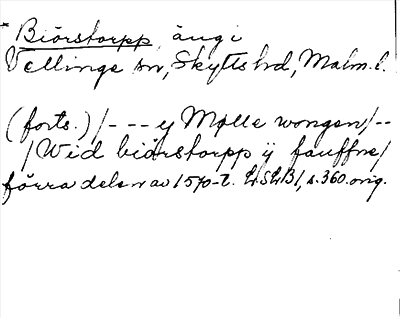 * Biörstorpp, äng i
Vellinge sn, Skytts hd, Malm. l.
(forts.) /--- ÿ Mølle wongen /--
/Wid biörstorpp ÿ fauffne/
förra delen av 1570-t. LSLB1, s. 360. orig.